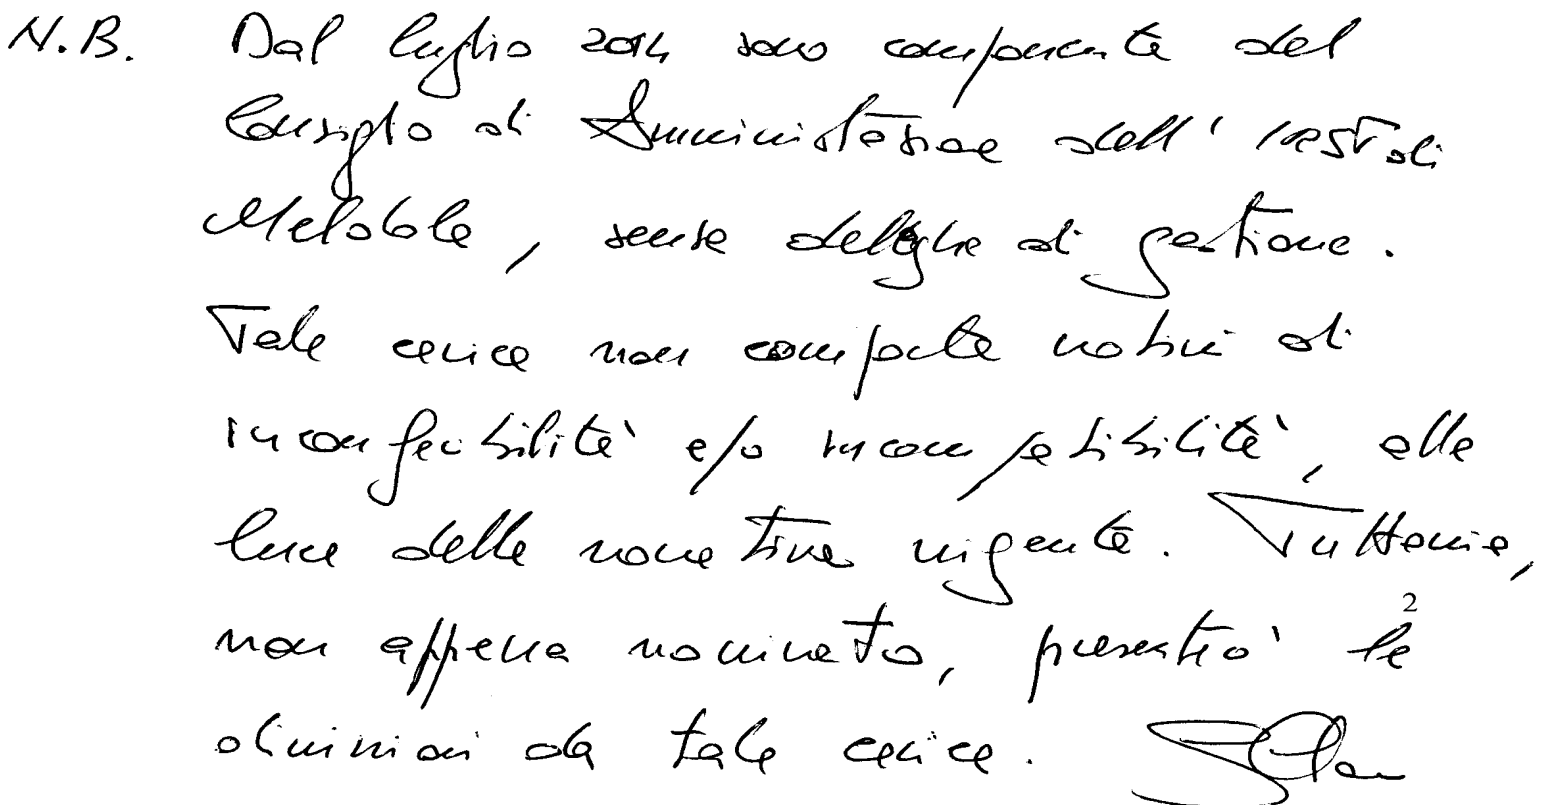 N.B. Dal luglio 2014 sono componente del
Consiglio di Amministrazione dell' IRST di
Meldola, senza deleghe di gestione.
Tale carica non comporta motivi di
inconferibilità e/o incompatibilità, alla
luce della normativa vigente. Tuttavia,
non appena nominato, presenterò le
2
dimissioni da tale carica.